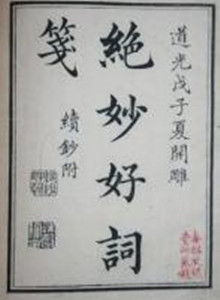 道光戊子夏開雕
絶妙好詞
箋
續鈔附